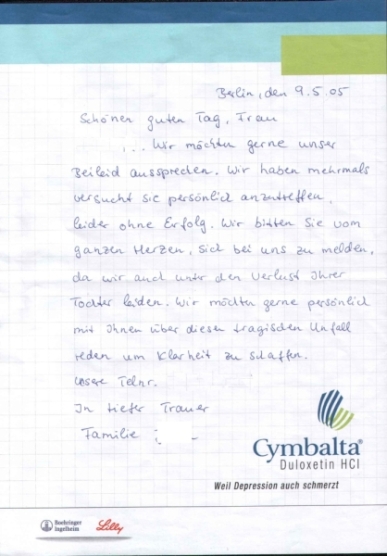 Berlin, den 9.5.05
Schönen guten Tag, Frau
... Wir möchten gerne unser
Beileid aussprechen. Wir haben mehrmals
versucht sie persönlich anzutreffen,
leider ohne Erfolg. Wir bitten Sie vom
ganzen Herzen, sich bei uns zu melden,
da wir auch unter den Verlust Ihrer
Tochter leiden. Wir möchten gerne persönlich
mit Ihnen über diesen tragischen Unfall
reden um Klarheit zu schaffen.
Unsere Telnr.
In tiefer Trauer
Familie
Cymbalta®
Duloxetin HCl
Weil Depression auch schmerzt
Boehringer
Ingelheim
Lilly